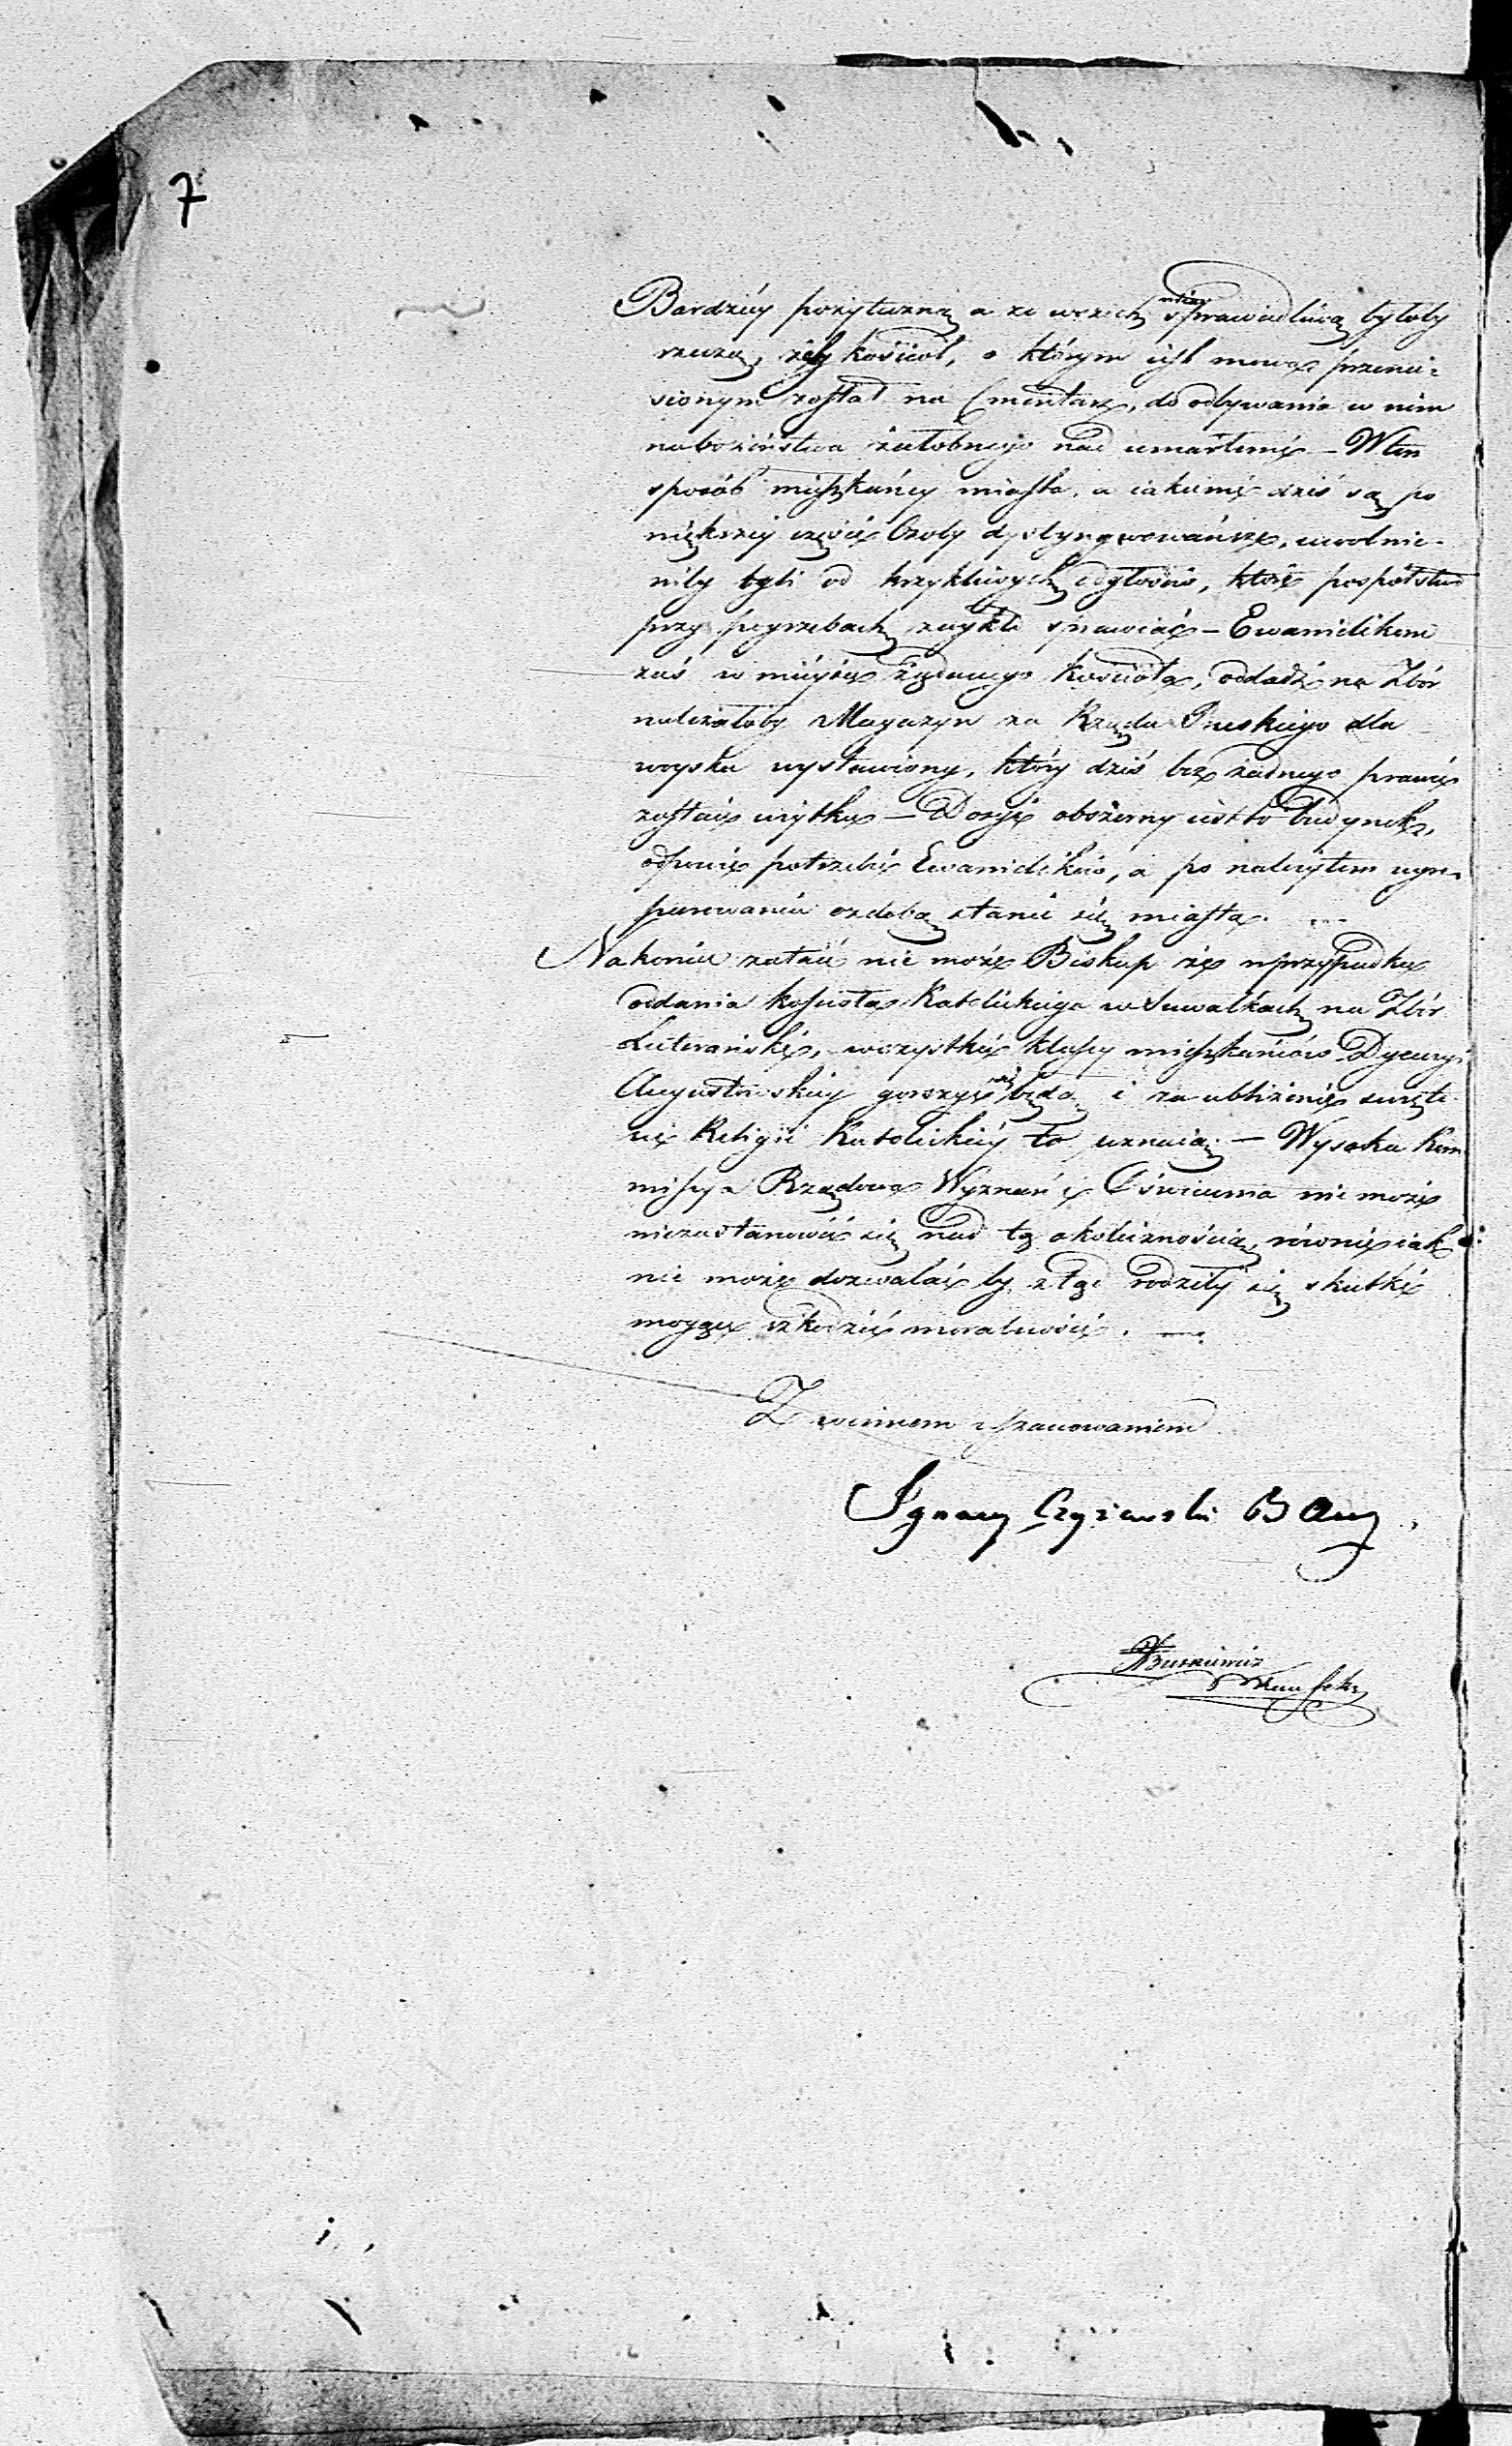 7
Bardziéy pożyteczną a ze wszech miar sprawiedliwą byłoby
rzeczą, żeby kościół, o którym iest mowa przenie-
sionym został na Cmentarz, do odbywania w nim
nabożeństwa żałobnego nad umarłemi – W ten
sposób mieszkańcy miasta, a iakiemi dziś są po
większéy części Osoby dystyngwowańsze, uwolnie-
niby byli od krzykliwych odgłosów, które pospólstwo
przy pogrzebach zwykło sprawiać – Ewanielikom
zaś w mieysce żądanego kościoła, oddadź na Zbór
należałoby Magazyn za Rządu Pruskiego dla
woyska wystawiony, który dziś bez żadnego prawie
zostaie użytku – Dosyć obszerny iest to budynek,
odpowie potrzebie Ewanielików, a po należytem wyre-
perowaniu ozdobą stanie się miasta.
Nakoniec zataić nie może Biskup że w przypadku
oddania kościoła Katolickiego w Suwałkach na Zbór
Luterański, wszystkie klassy mieszkańców Dyecezyi
Augustowskiéy gorszyć się będą i za ubliżenie święte-
ie Religii Katolickiéy to uznaią. – Wysoka Kom-
missya Rządowa Wyznań i Oświecenia nie może
niezastanowić się nad tą okolicznością, równie iak
nie może dozwalać by ztąd rodziły się skutki
mogące szkodzić moralności. –
Z winnem uszanowaniem
Ignacy Czyżewski B Aug